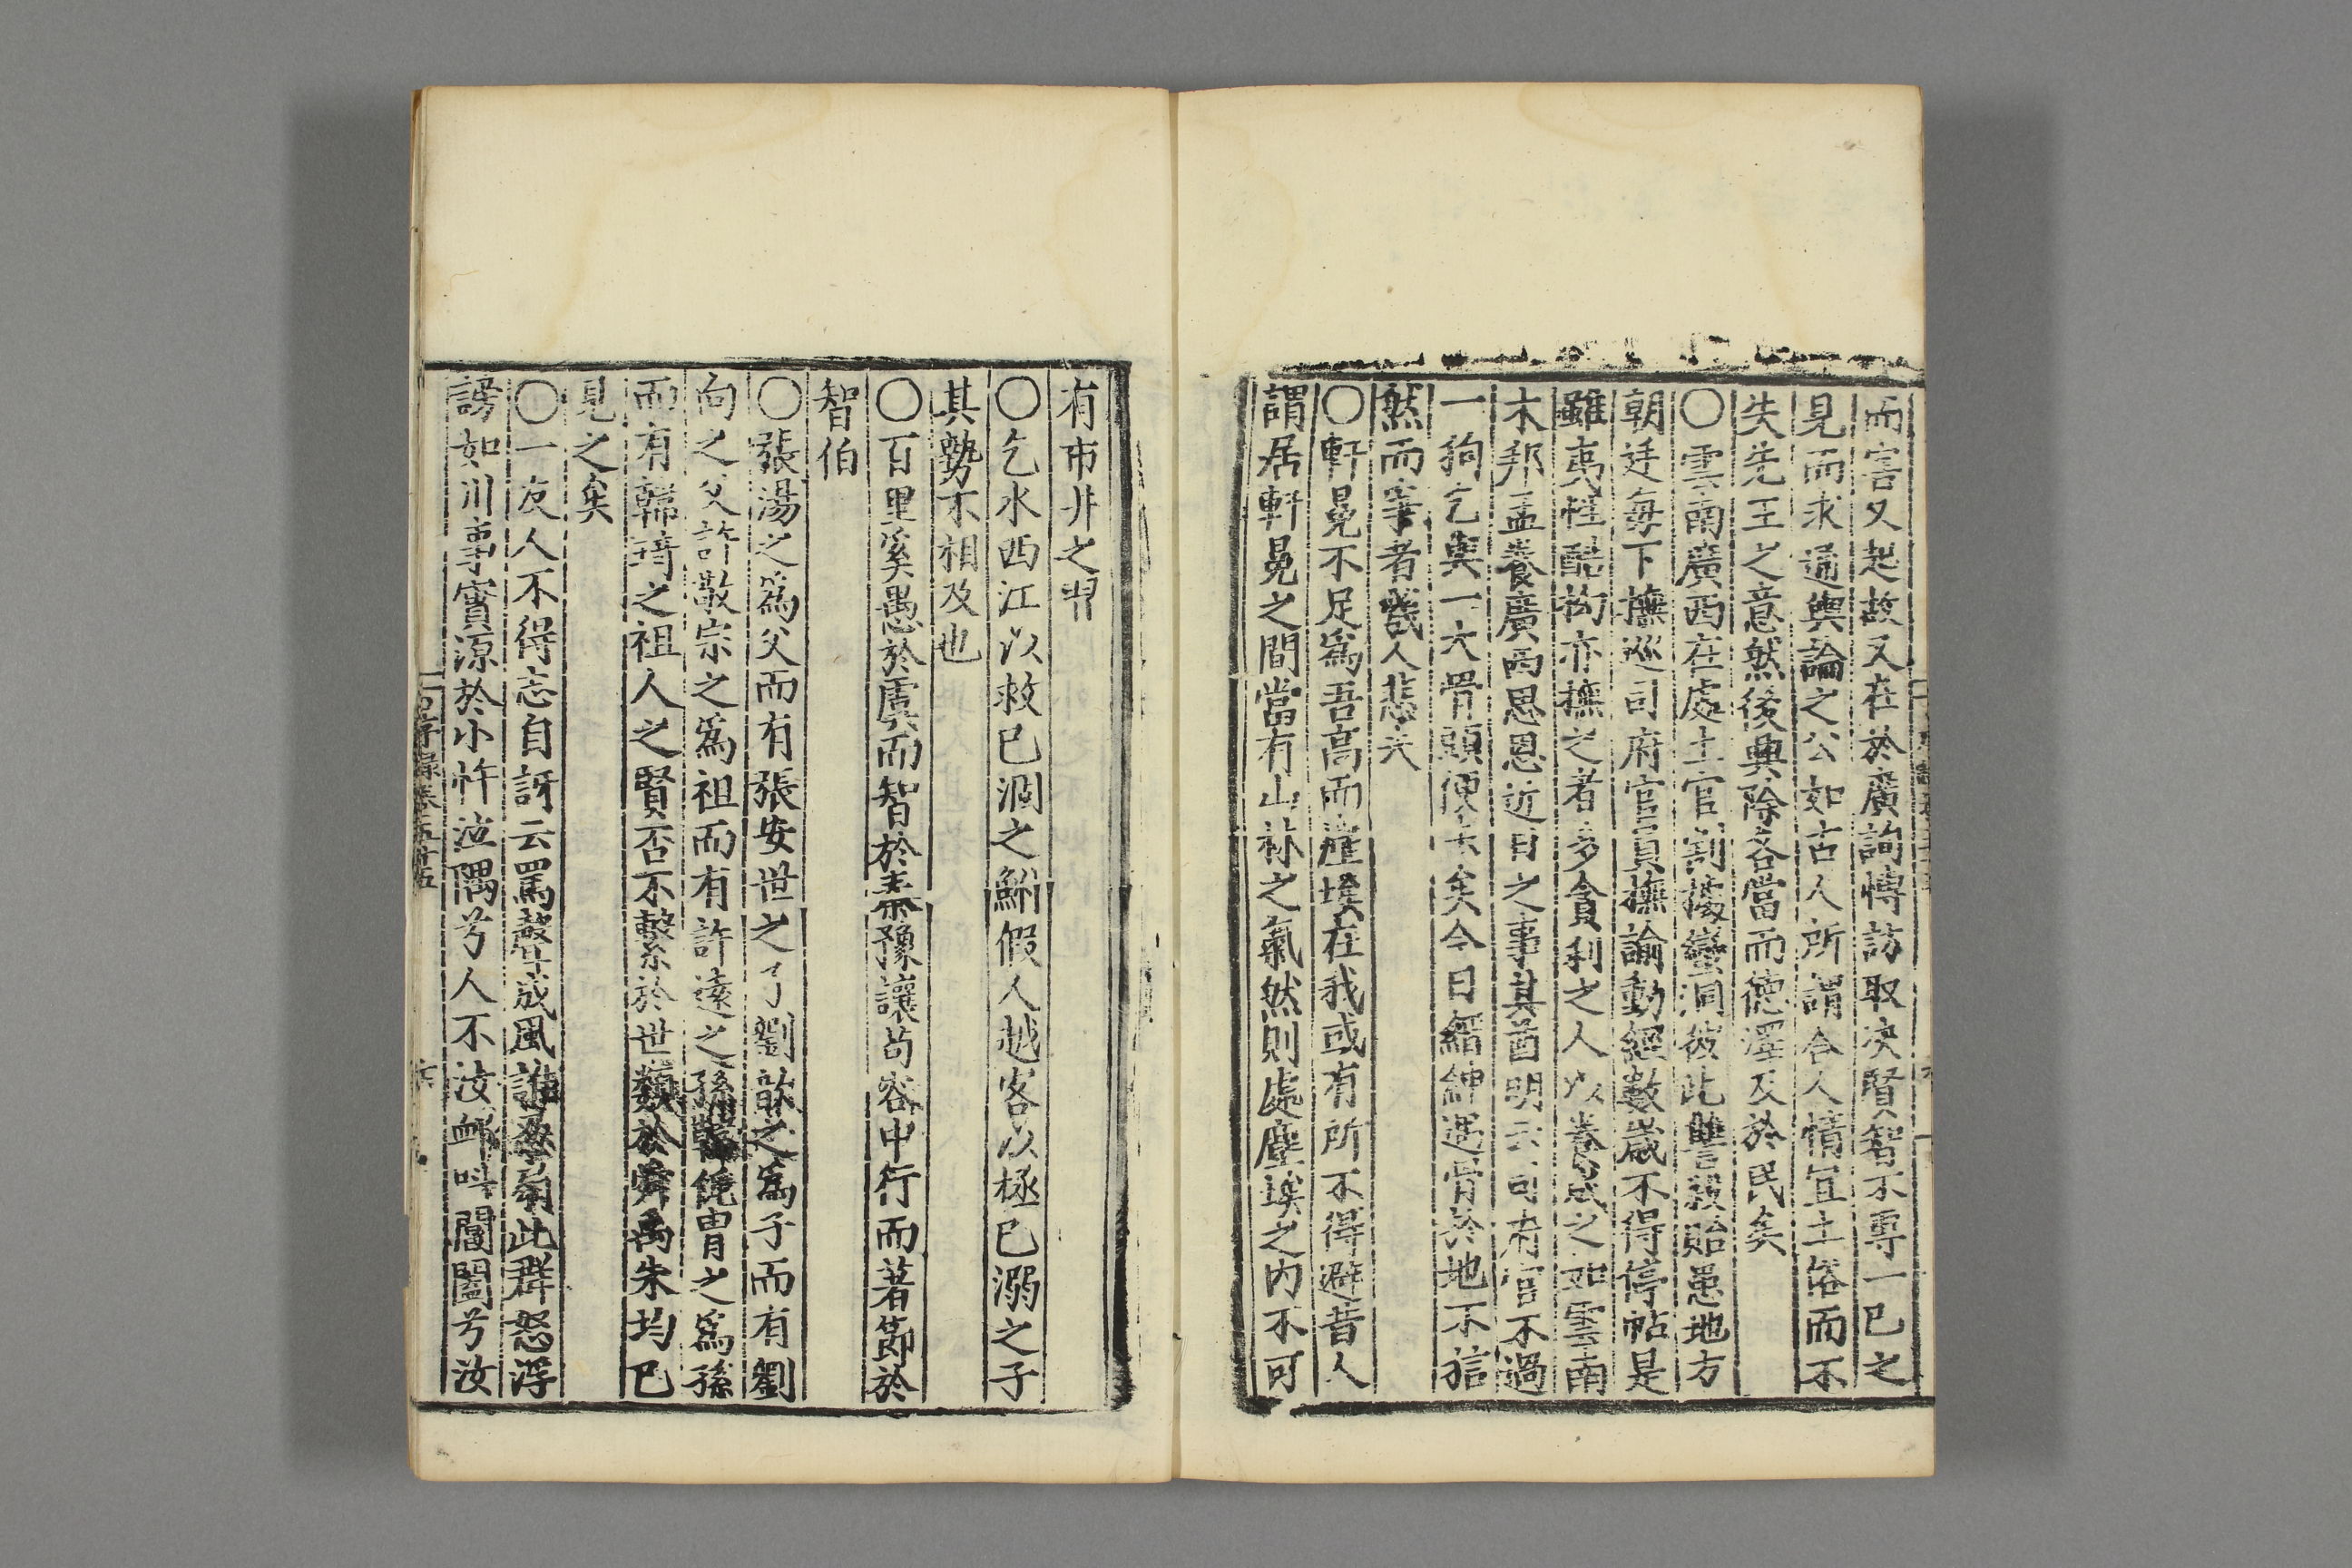 而害又起故又在於廣詢愽訪取决賢智不專一己之
見而求通輿論之公如古人所謂合人情宜土俗而不
失先王之意然後興除各當而德澤及於民矣
〇雲南廣西在處土官割據蠻洞彼此讐殺貽患地方
朝廷每下撫巡司府官員撫諭動經數歲不得停帖是
雖夷性酷拘亦撫之者多貪利之人以養成之如雲南
木邦孟養廣西思恩近日之事其酋明云司府官不過
一狗乞與一大骨頭便去矣今日縉紳遇骨於地不狺
然而爭者幾人悲夫
〇軒冕不足爲吾高而塵埃在我或有所不得避昔人
謂居軒冕之間當有山林之氣然則處塵埃之内不可
有市井之習
〇乞水西江以救已涸之鮒假人越客以拯已溺之子
其勢不相及也
〇百里奚愚於虞而智於秦豫讓苟容中行而著節於
智伯
〇張湯之爲父而有張安世之子劉歆之爲子而有劉
向之父許敬宗之爲祖而有許遠之孫韓侂冑之爲孫
而有韓琦之祖人之賢否不繫於世類於舜禹朱均已
見之矣
〇一友人不得志自訝云罵聲成風誰爲此群怒浮
謗如川事實源於小忤泣隅兮人不汝衈呌閽闔兮汝